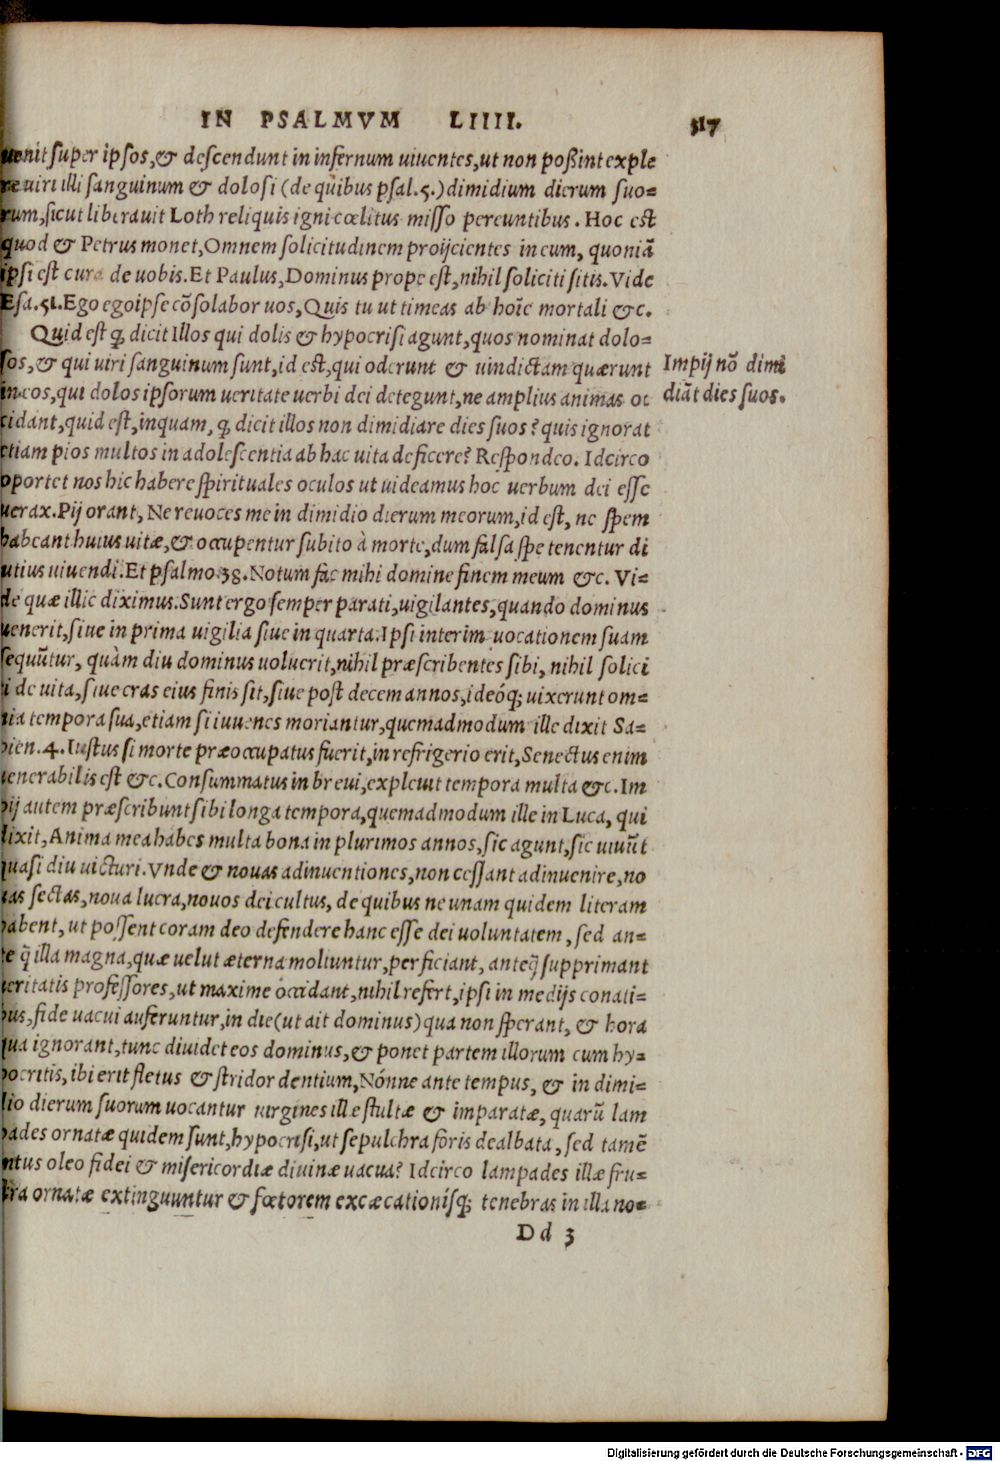 IN PSALMVM LIIII. 317
uenit super ipsos, & descendunt in infernum uiuentes, ut non poßint exple
re uiri illi sanguinum & dolosi (de quibus psal. 5.) dimidium dierum suo=
rum, sicut liberauit Loth reliquis igni cœlitus misso pereuntibus. Hoc est
quod & Petrus monet, Omnem solicitudinem proijcientes in eum, quoniã
ipsi est cura de uobis. Et Paulus, Dominus prope est, nihil soliciti sitis. Vide
Esa. 51. Ego ego ipse cõsolabor uos, Quis tu ut timeas ab hoĩe mortali &c.
Quid est ꝙ dicit Illos qui dolis & hypocrisi agunt, quos nominat dolo=
sos, & qui uiri sanguinum sunt, id est, qui oderunt & uindictam quærunt
in eos, qui dolos ipsorum ueritate uerbi dei detegunt, ne amplius animas oc
cidant, quid est, inquam, ꝙ dicit illos non dimidiare dies suos? quis ignorat
etiam pios multos in adolescentia ab hac uita deficere? Respondeo. Idcirco
oportet nos hic habere spirituales oculos ut uideamus hoc uerbum dei esse
uerax. Pij orant, Ne reuoces me in dimidio dierum meorum, id est, ne spem
habeant huius uitæ, & occupentur subito à morte, dum falsa spe tenentur di
utius uiuendi. Et psalmo. 38. Notum fac mihi domine finem meum &c. Vi=
de quæ illic diximus. Sunt ergo semper parati, uigilantes, quando dominus
uenerit, siue in prima uigilia siue in quarta. Ipsi interim uocationem suam
sequũtur, quàm diu dominus uoluerit, nihil præscribentes sibi, nihil solici
ti de uita, siue cras eius finis sit, siue post decem annos, ideóq; uixerunt om=
nia tempora sua, etiam si iuuenes moriantur, quemadmodum ille dixit Sa=
pien. 4. Iustus si morte præoccupatus fuerit, in refrigerio erit, Senectus enim
uenerabilis est &c. Consummatus in breui, expleuit tempora multa &c. Im
pij autem præscribunt sibi longa tempora, quemadmodum ille in Luca, qui
dixit, Anima mea habes multa bona in plurimos annos, sic agunt, sic uiuũt
quasi diu uicturi. Vnde & nouas adinuentiones, non cessant adinuenire, no
uas sectas, noua lucra, nouos dei cultus, de quibus ne unam quidem literam
habent, ut possent coram deo defendere hanc esse dei uoluntatem, sed an=
te q̃ illa magna, quæ uelut æterna moliuntur, perficiant, anteq̃ supprimant
ueritatis professores, ut maxime occidant, nihil refert, ipsi in medijs conati=
bus, fide uacui auferuntur, in die (ut ait dominus) qua non sperant, & hora
qua ignorant, tunc diuidet eos dominus, & ponet partem illorum cum hy=
pocritis, ibi erit fletus & stridor dentium, Nónne ante tempus, & in dimi=
dio dierum suorum uocantur uirgines illæ stultæ & imparatæ, quarũ lam
pades ornatæ quidem sunt, hypocrisi, ut sepulchra foris dealbata, sed tamẽ
intus oleo fidei & misericordiæ diuinæ uacua? Idcirco lampades illæ fru=
stra ornatæ extinguuntur & fœtorem excæcationísq; tenebras in illa no=
Dd 3
Impij nõ dimi
diãt dies suos.
Digitalisierung gefördert durch die Deutsche Forschungsgemeinschaft - DFG